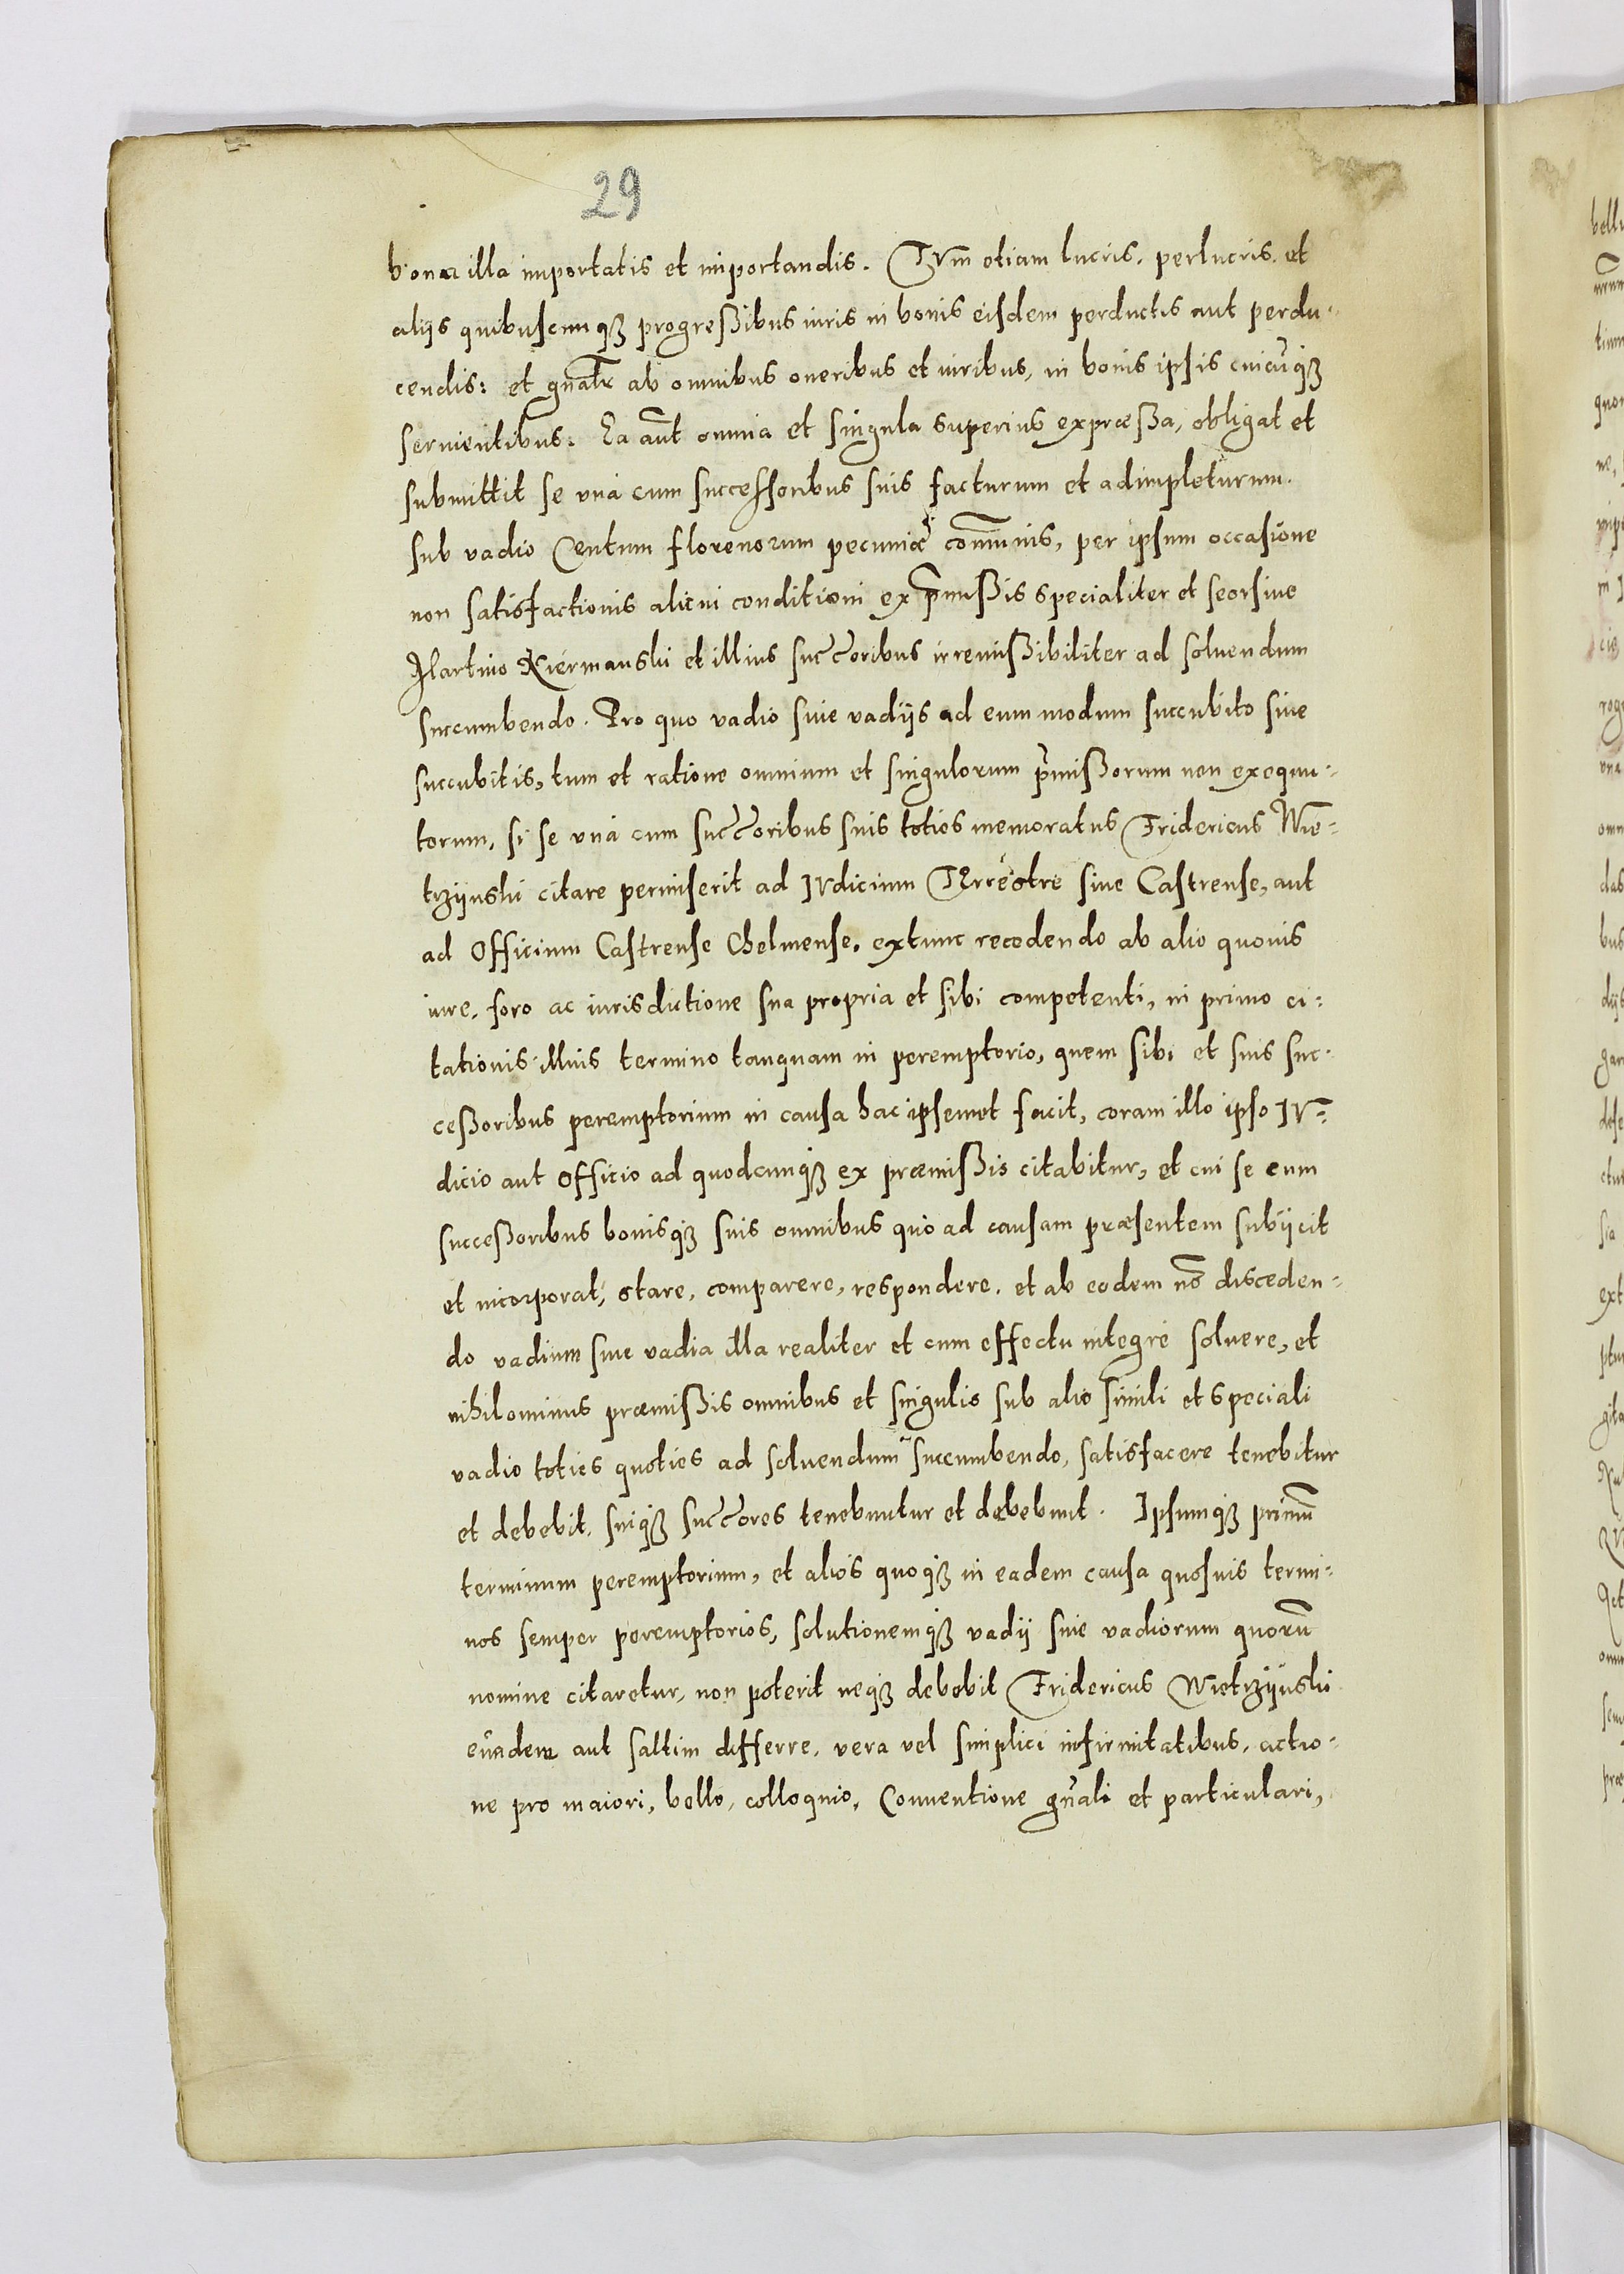 29
bona illa importatis et importandis. Tum etiam lucris, perlucris, et
alijs quibuscumqꝫ progreßibus iuris in bonis eisdem perductis aut perdu-
cendis: et gnalr ab omnibus oneribus et iuribus, in bonis ipsis cuicuqꝫ
seruientibus. Ea aut omnia et singula superius expraeßa, obligat et
submittit se vná cum successoribus suis facturum et adimpleturum.
sub vadio Centum florenorum pecuniae comunis, per ipsum occasione
non satisfactionis alicui conditioni ex pmißis specialiter et seorsiue
Martino Niemanski et illius succoribus irremißibiliter ad soluendum
succumbendo. Pro quo vadio siue vadijs ad eum modum succubito siue
succubitis, tum et ratione omnium et singulorum pmißorum non exequu-
torum, si se vná cum succoribus suis toties memoratus Fridericus Wie-
trzijnski citare permiserit ad Iudicium Terrestre siue Castrense, aut
ad Officium Castrense Chelmense, extunc recedendo ab alio quouis
iure, foro ac iurisdictione sua propria et sibi competenti, in primo ci-
tationis illius termino tanquam in peremptorio, quem sibi et suis suc-
ceßoribus peremptorium in causa hac ipsemet facit, coram illo ipso Iu-
dicio aut Officio ad quodcunqꝫ ex praemißis citabitur, et cui se cum
succeßoribus bonisqꝫ suis omnibus quò ad causam praesentem subijcit
et incorporat, stare, comparere, respondere, et ab eodem no disceden-
do vadium siue vadia illa realiter et cum effectu integrè soluere, et
nihilominus praemißis omnibus et singulis sub alio simili et speciali
vadio toties quoties ad soluendum succumbendo, satisfacere tenebitur
et debebit, suiqꝫ succores tenebuntur et debebunt. Ipsumqꝫ primu
terminum peremptorium, et alios quoqꝫ in eadem causa quosuis termi-
nos semper peremptorios, solutionemqꝫ vadij siue vadiorum quoru
nomine citaretur, non poterit neqꝫ debebit Fridericus Wietrzijnski
euadere aut saltim differre, vera vel simplici infirmitatibus, actio-
ne pro maiori, bello, colloquio, Conuentione gnali et particulari,